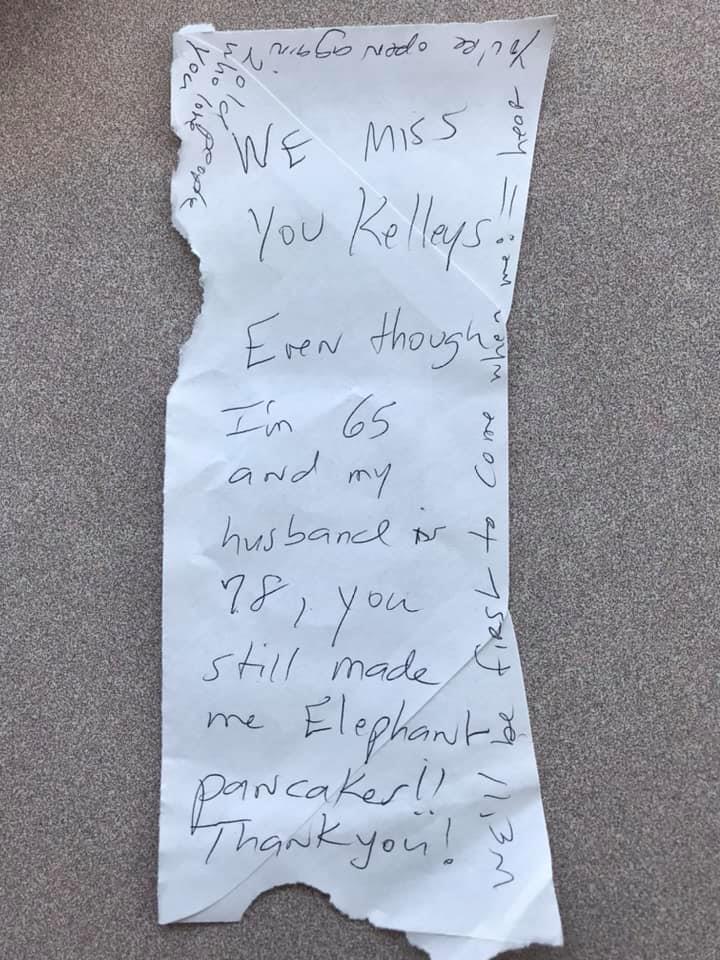 WE MISS
You Kelleys
Even though
I'm 65
and my
husband is
78, you
still made
me Elephant
pancakes!!
Thank you!
We'll be first to come when we hear
You're open again!
old people
who love
you